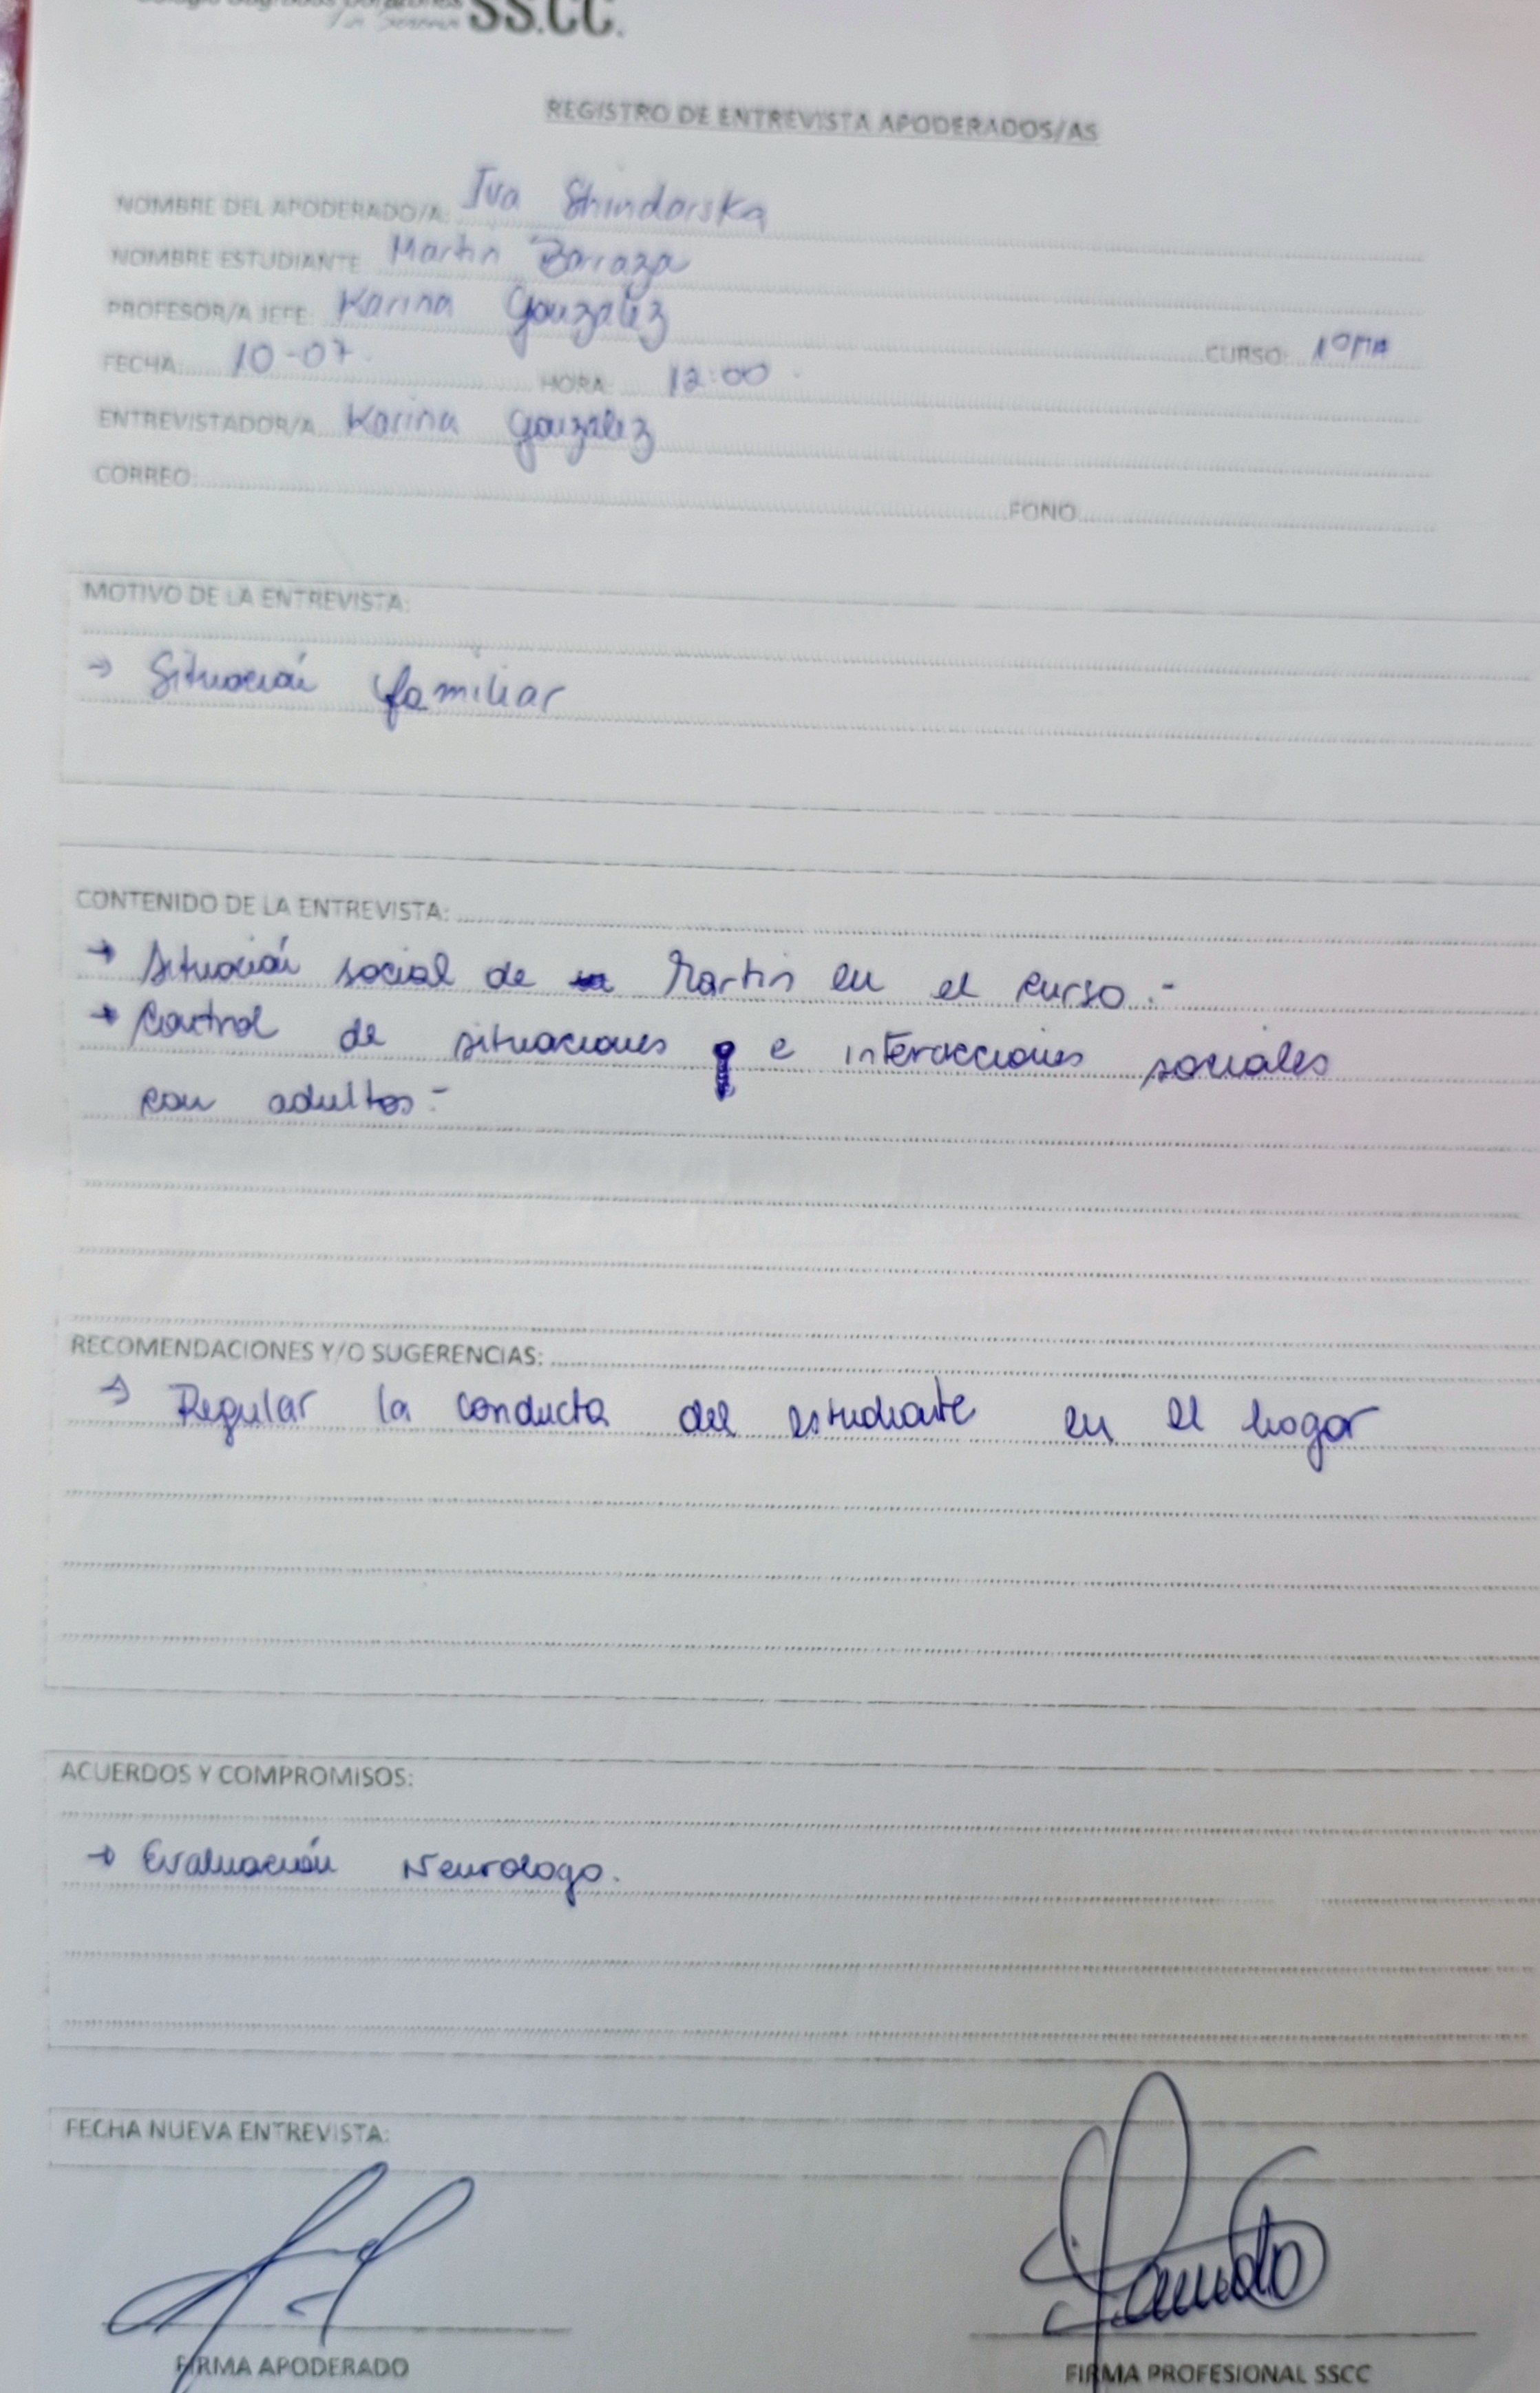 Colegio Sagrados Corazones
La Serena SS.CC.
REGISTRO DE ENTREVISTA APODERADOS/AS
NOMBRE DEL APODERADO/A: Iva Shindarska
NOMBRE ESTUDIANTE Martin Barraza
PROFESOR/A JEFE: Karina Gonzalez
CURSO: 1º
FECHA: 10-07. HORA: 12:00
ENTREVISTADOR/A Karina Gonzalez
CORREO: FONO
MOTIVO DE LA ENTREVISTA:
→ Situación familiar
CONTENIDO DE LA ENTREVISTA:
→ Situación social de Martin en el curso.-
→ Control de situaciones e interacciones sociales
con adultos-
RECOMENDACIONES Y/O SUGERENCIAS:
→ Regular la conducta del estudiante en el hogar
ACUERDOS Y COMPROMISOS:
→ Evaluación Neurologo.
FECHA NUEVA ENTREVISTA:
FIRMA APODERADO
FIRMA PROFESIONAL SSCC